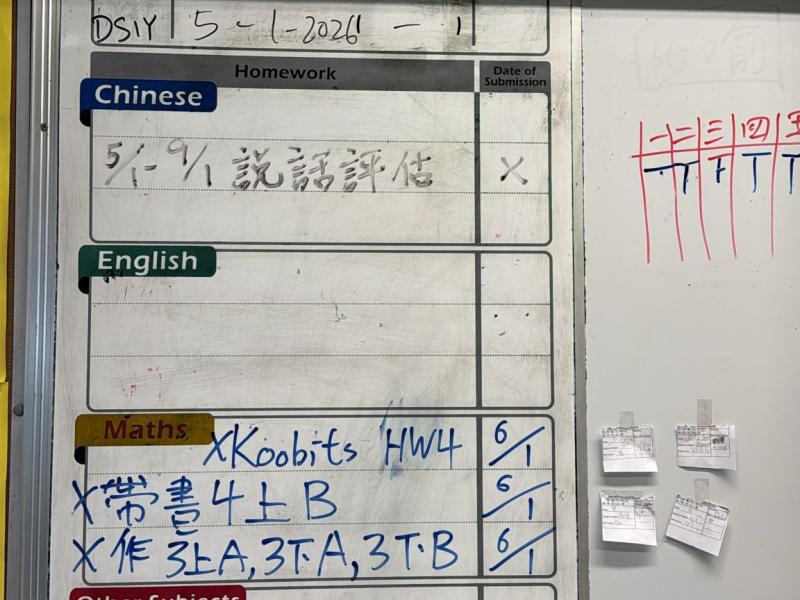 DS1Y 5-1-2026 一 1
Homework Date of Submission
Chinese
5/1-9/1 說話評估 X
English
Maths XKoobits HW4 6/1
X帶書4上B 6/1
X作3上A,3下A,3下B 6/1
Other Subjects
一 二 三 四 五
T T T T T